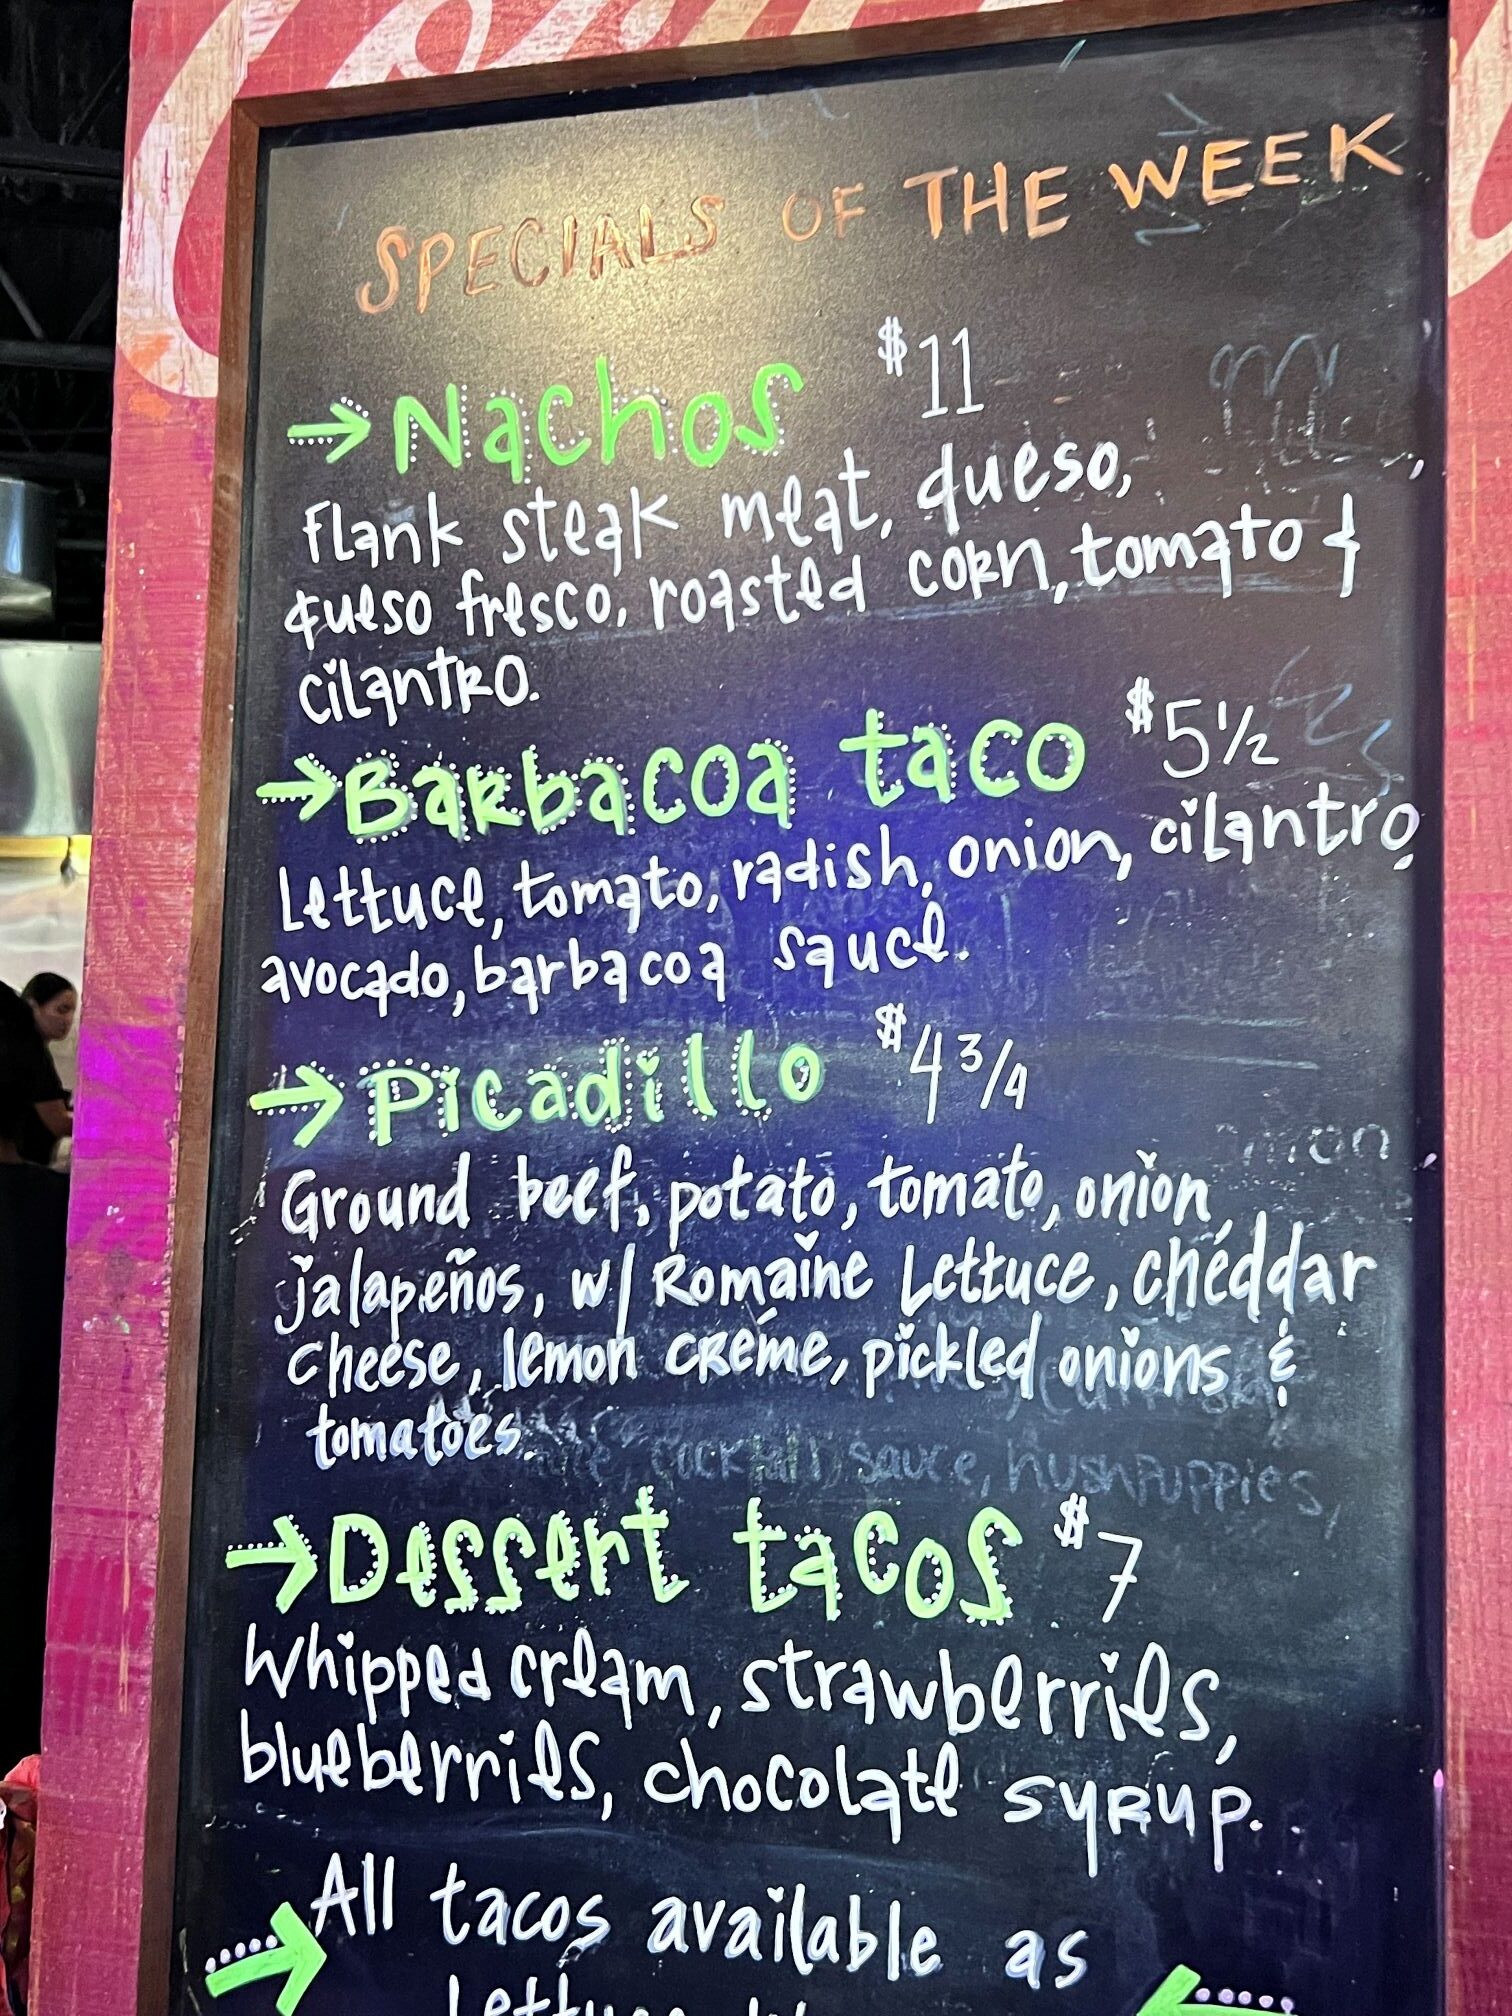 SPECIALS OF THE WEEK
→ Nachos $11
Flank steak meat, queso,
queso fresco, roasted corn, tomato &
cilantro.
→ Barbacoa taco $5½
Lettuce, tomato, radish, onion, cilantro,
avocado, barbacoa sauce.
→ Picadillo $4¾
Ground beef, potato, tomato, onion,
jalapeños, w/ Romaine Lettuce, cheddar
cheese, lemon créme, pickled onions &
tomatoes.
cocktail sauce, hushpuppies,
→ Dessert tacos $7
Whipped cream, strawberries,
blueberries, chocolate syrup.
→ All tacos available as
Lettuce